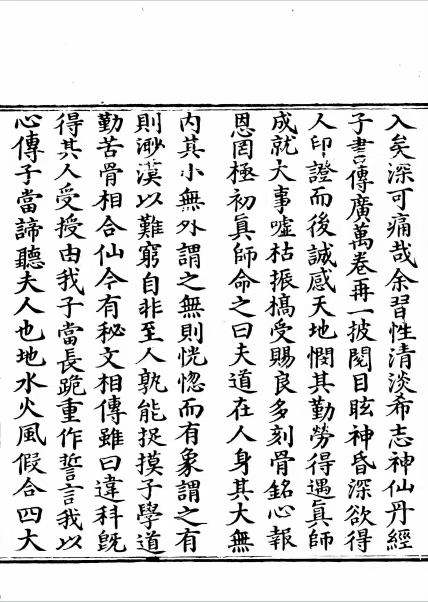 入矣深可痛哉余習性清淡希志神仙丹經
子書傳廣萬卷再一披閱目眩神昏深欲得
人印證而後誠感天地憫其勤勞得遇真師
成就大事噓枯振槁受賜良多刻骨銘心報
恩罔極初真師命之曰夫道在人身其大無
內其小無外謂之無則恍惚而有象謂之有
則渺漠以難窮自非至人孰能捉摸子學道
勤苦骨相合仙今有秘文相傳雖曰違科旣
得其人受授由我子當長跪重作誓言我以
心傳子當諦聽夫人也地水火風假合四大